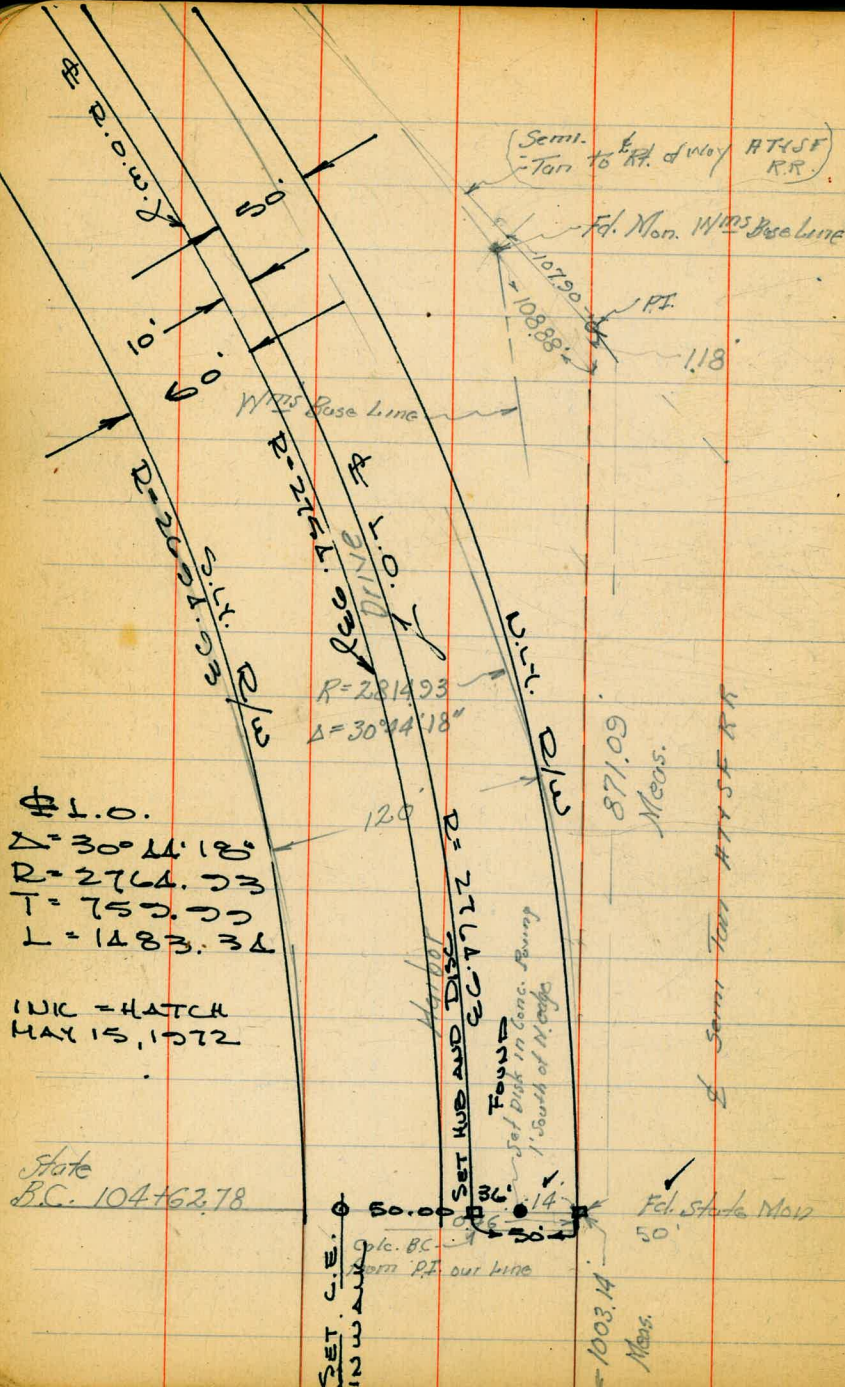 ℄ R.O.W.
50'
(Semi.
Tan to ℄ Rt. of Way AT&SF
R.R.)
Fd. Mon. Wms Base Line
107.90
108.88'
P.I.
1.18'
10'
60'
Wms Base Line
R=2694.93
S.LY. R/W
R=2754.93
Drive
℄ L.O.
N.LY. R/W
R=2814.93
Δ=30°44'18"
120'
871.09'
Meas.
℄ Semi Tan AT&SF RR
℄ L.O.
Δ=30°44'18"
R=2764.93
T=759.99
L=1483.34
INK = HATCH
MAY 15, 1972
Harbor
SET HUB AND DISC
FOUND
Set Disk in Conc. Paving
1' South of N. edge
State
B.C. 104+62.78
50.00
36'
14'
50'
Fd. State Mon
50'
Calc. B.C.
from P.I. our Line
SET C.E.
IN WALK
1003.14'
Meas.